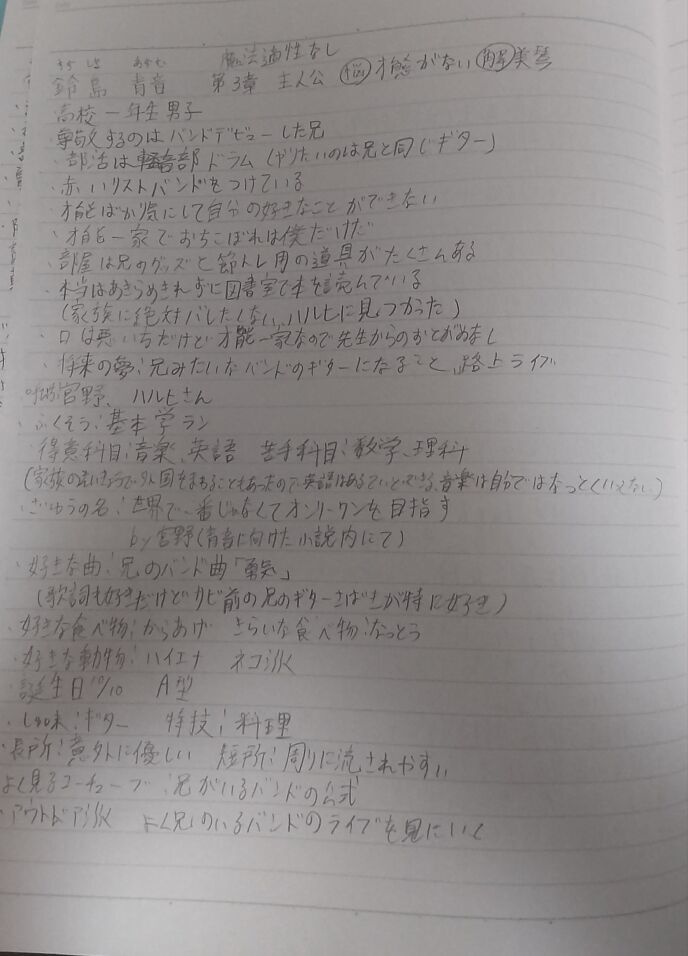 魔法適性なし
鈴島 青音 第3章 主人公 悩 才能がない 解 美琴
高校一年生男子
尊敬するのはバンドデビューした兄
・部活は軽音部ドラム (やりたいのは兄と同じギター)
・赤いリストバンドをつけている
・才能ばか気にして自分の好きなことができない
・才能一家でおちこぼれは僕だけだ
・部屋は兄のグッズと筋トレ用の道具がたくさんある
・本当はあきらめきれずに図書室で本を読んでいる
(家族に絶対バレたくない、ハルヒに見つかった)
・口は悪いちだけど才能一家なので先生からのおとがめなし
・将来の夢:兄みたいなバンドのギターになること、路上ライブ
宮野、ハルヒさん
・ふくそう:基本学ラン
・得意科目:音楽、英語 苦手科目:数学、理科
(家族の えいきょうで外国をまわることもあったので、英語はあるていどできる、音楽は自分ではなっとくいってない)
・ざゆうの名:世界で一番じゃなくてオンリーワンを目指す
by宮野(青音に向けた小説内にて)
・好きな曲:兄のバンド曲「勇気」
(歌詞も好きだけどサビ前の兄のギターさばきが特に好き)
・好きな食べ物:からあげ きらいな食べ物:なっとう
・好きな動物:ハイエナ ネコ派
・誕生日10/10 A型
・しゅ味:ギター 特技:料理
・長所:意外に優しい 短所:周りに流されやすい
よく見るユーチューブ:兄がいるバンドの公式
・アウトドア派 よく兄のいるバンドのライブを見にいく